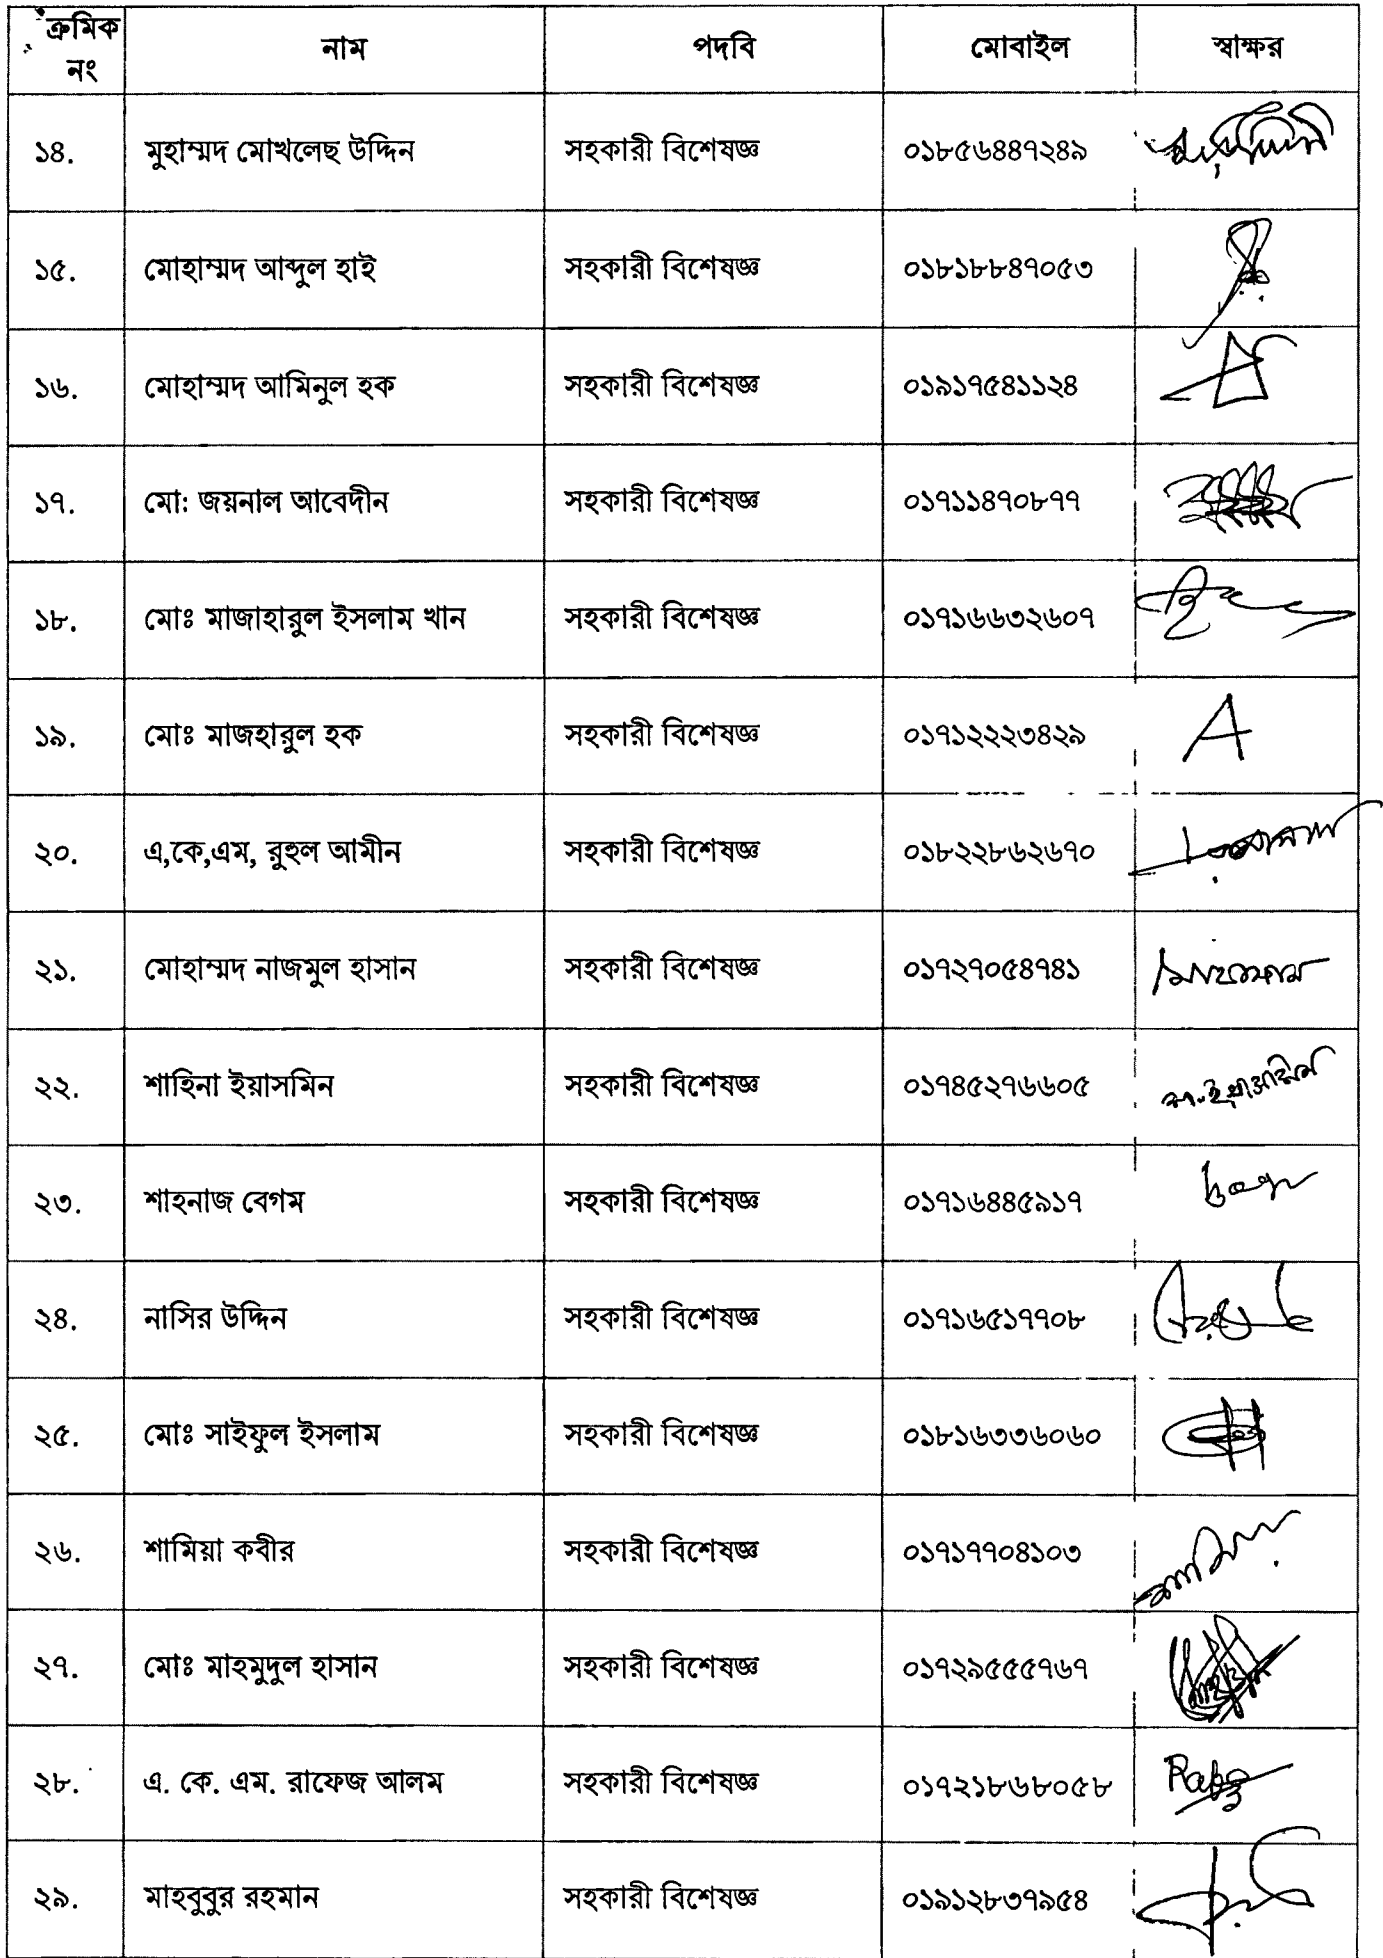 ক্রমিক নং নাম পদবি মোবাইল স্বাক্ষর
১৪. মুহাম্মদ মোখলেছ উদ্দিন সহকারী বিশেষজ্ঞ ০১৮৫৬৪৪৭২৪৯
১৫. মোহাম্মদ আব্দুল হাই সহকারী বিশেষজ্ঞ ০১৮১৮৮৪৭০৫৩
১৬. মোহাম্মদ আমিনুল হক সহকারী বিশেষজ্ঞ ০১৯১৭৫৪১১২৪
১৭. মো: জয়নাল আবেদীন সহকারী বিশেষজ্ঞ ০১৭১১৪৭০৮৭৭
১৮. মোঃ মাজাহারুল ইসলাম খান সহকারী বিশেষজ্ঞ ০১৭১৬৬৩২৬০৭
১৯. মোঃ মাজহারুল হক সহকারী বিশেষজ্ঞ ০১৭১২২২৩৪২৯
২০. এ,কে,এম, রুহুল আমীন সহকারী বিশেষজ্ঞ ০১৮২২৮৬২৬৭০
২১. মোহাম্মদ নাজমুল হাসান সহকারী বিশেষজ্ঞ ০১৭২৭০৫৪৭৪১
২২. শাহিনা ইয়াসমিন সহকারী বিশেষজ্ঞ ০১৭৪৫২৭৬৬০৫
২৩. শাহনাজ বেগম সহকারী বিশেষজ্ঞ ০১৭১৬৪৪৫৯১৭
২৪. নাসির উদ্দিন সহকারী বিশেষজ্ঞ ০১৭১৬৫১৭৭০৮
২৫. মোঃ সাইফুল ইসলাম সহকারী বিশেষজ্ঞ ০১৮১৬৩৩৬০৬০
২৬. শামিয়া কবীর সহকারী বিশেষজ্ঞ ০১৭১৭৭০৪১০৩
২৭. মোঃ মাহমুদুল হাসান সহকারী বিশেষজ্ঞ ০১৭২৯৫৫৫৭৬৭
২৮. এ. কে. এম. রাফেজ আলম সহকারী বিশেষজ্ঞ ০১৭২১৮৬৮০৫৮
২৯. মাহবুবুর রহমান সহকারী বিশেষজ্ঞ ০১৯১২৮৩৭৯৫৪